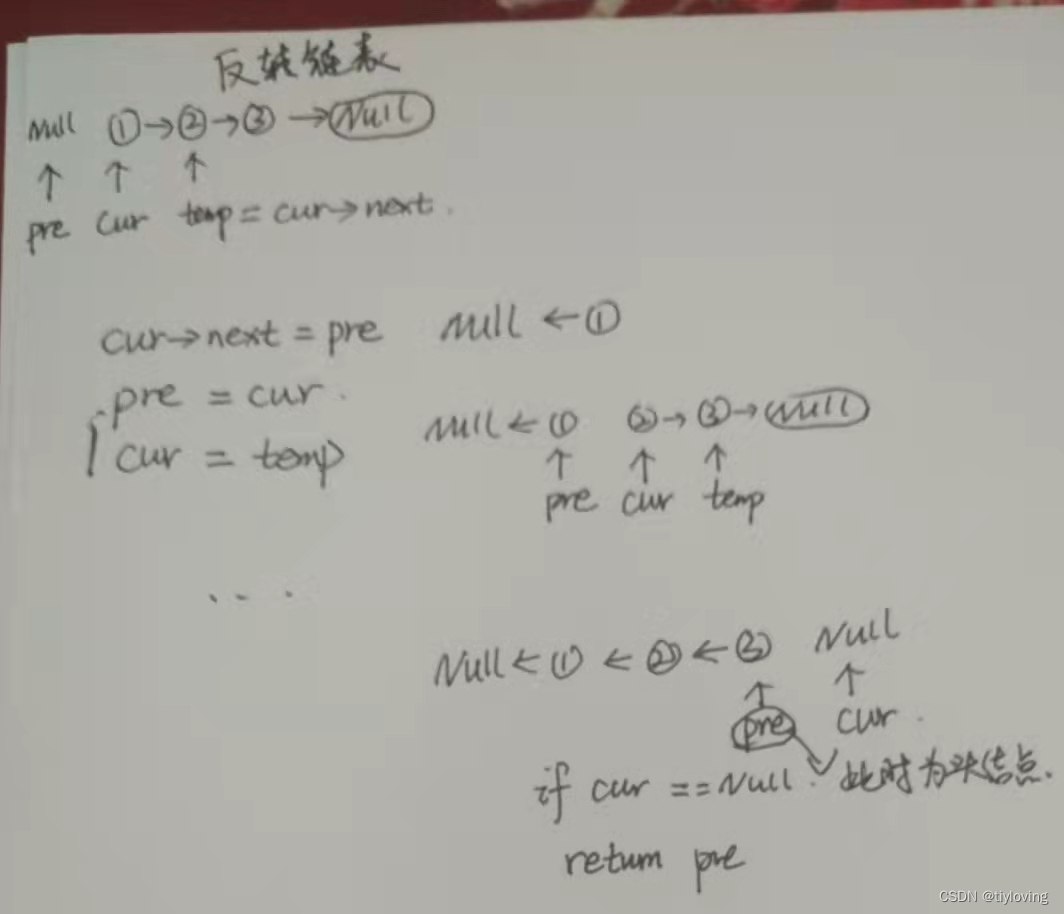 反转链表
Null ①→②→③→Null
↑ ↑ ↑
pre cur temp = cur→next.
cur→next = pre Null ←①
pre = cur.
cur = temp
Null ← ① ②→③→Null
↑ ↑ ↑
pre cur temp
...
Null ← ① ← ② ← ③ Null
↑ ↑
pre cur.
if cur == Null. 此时为头结点.
return pre
CSDN @tiyloving